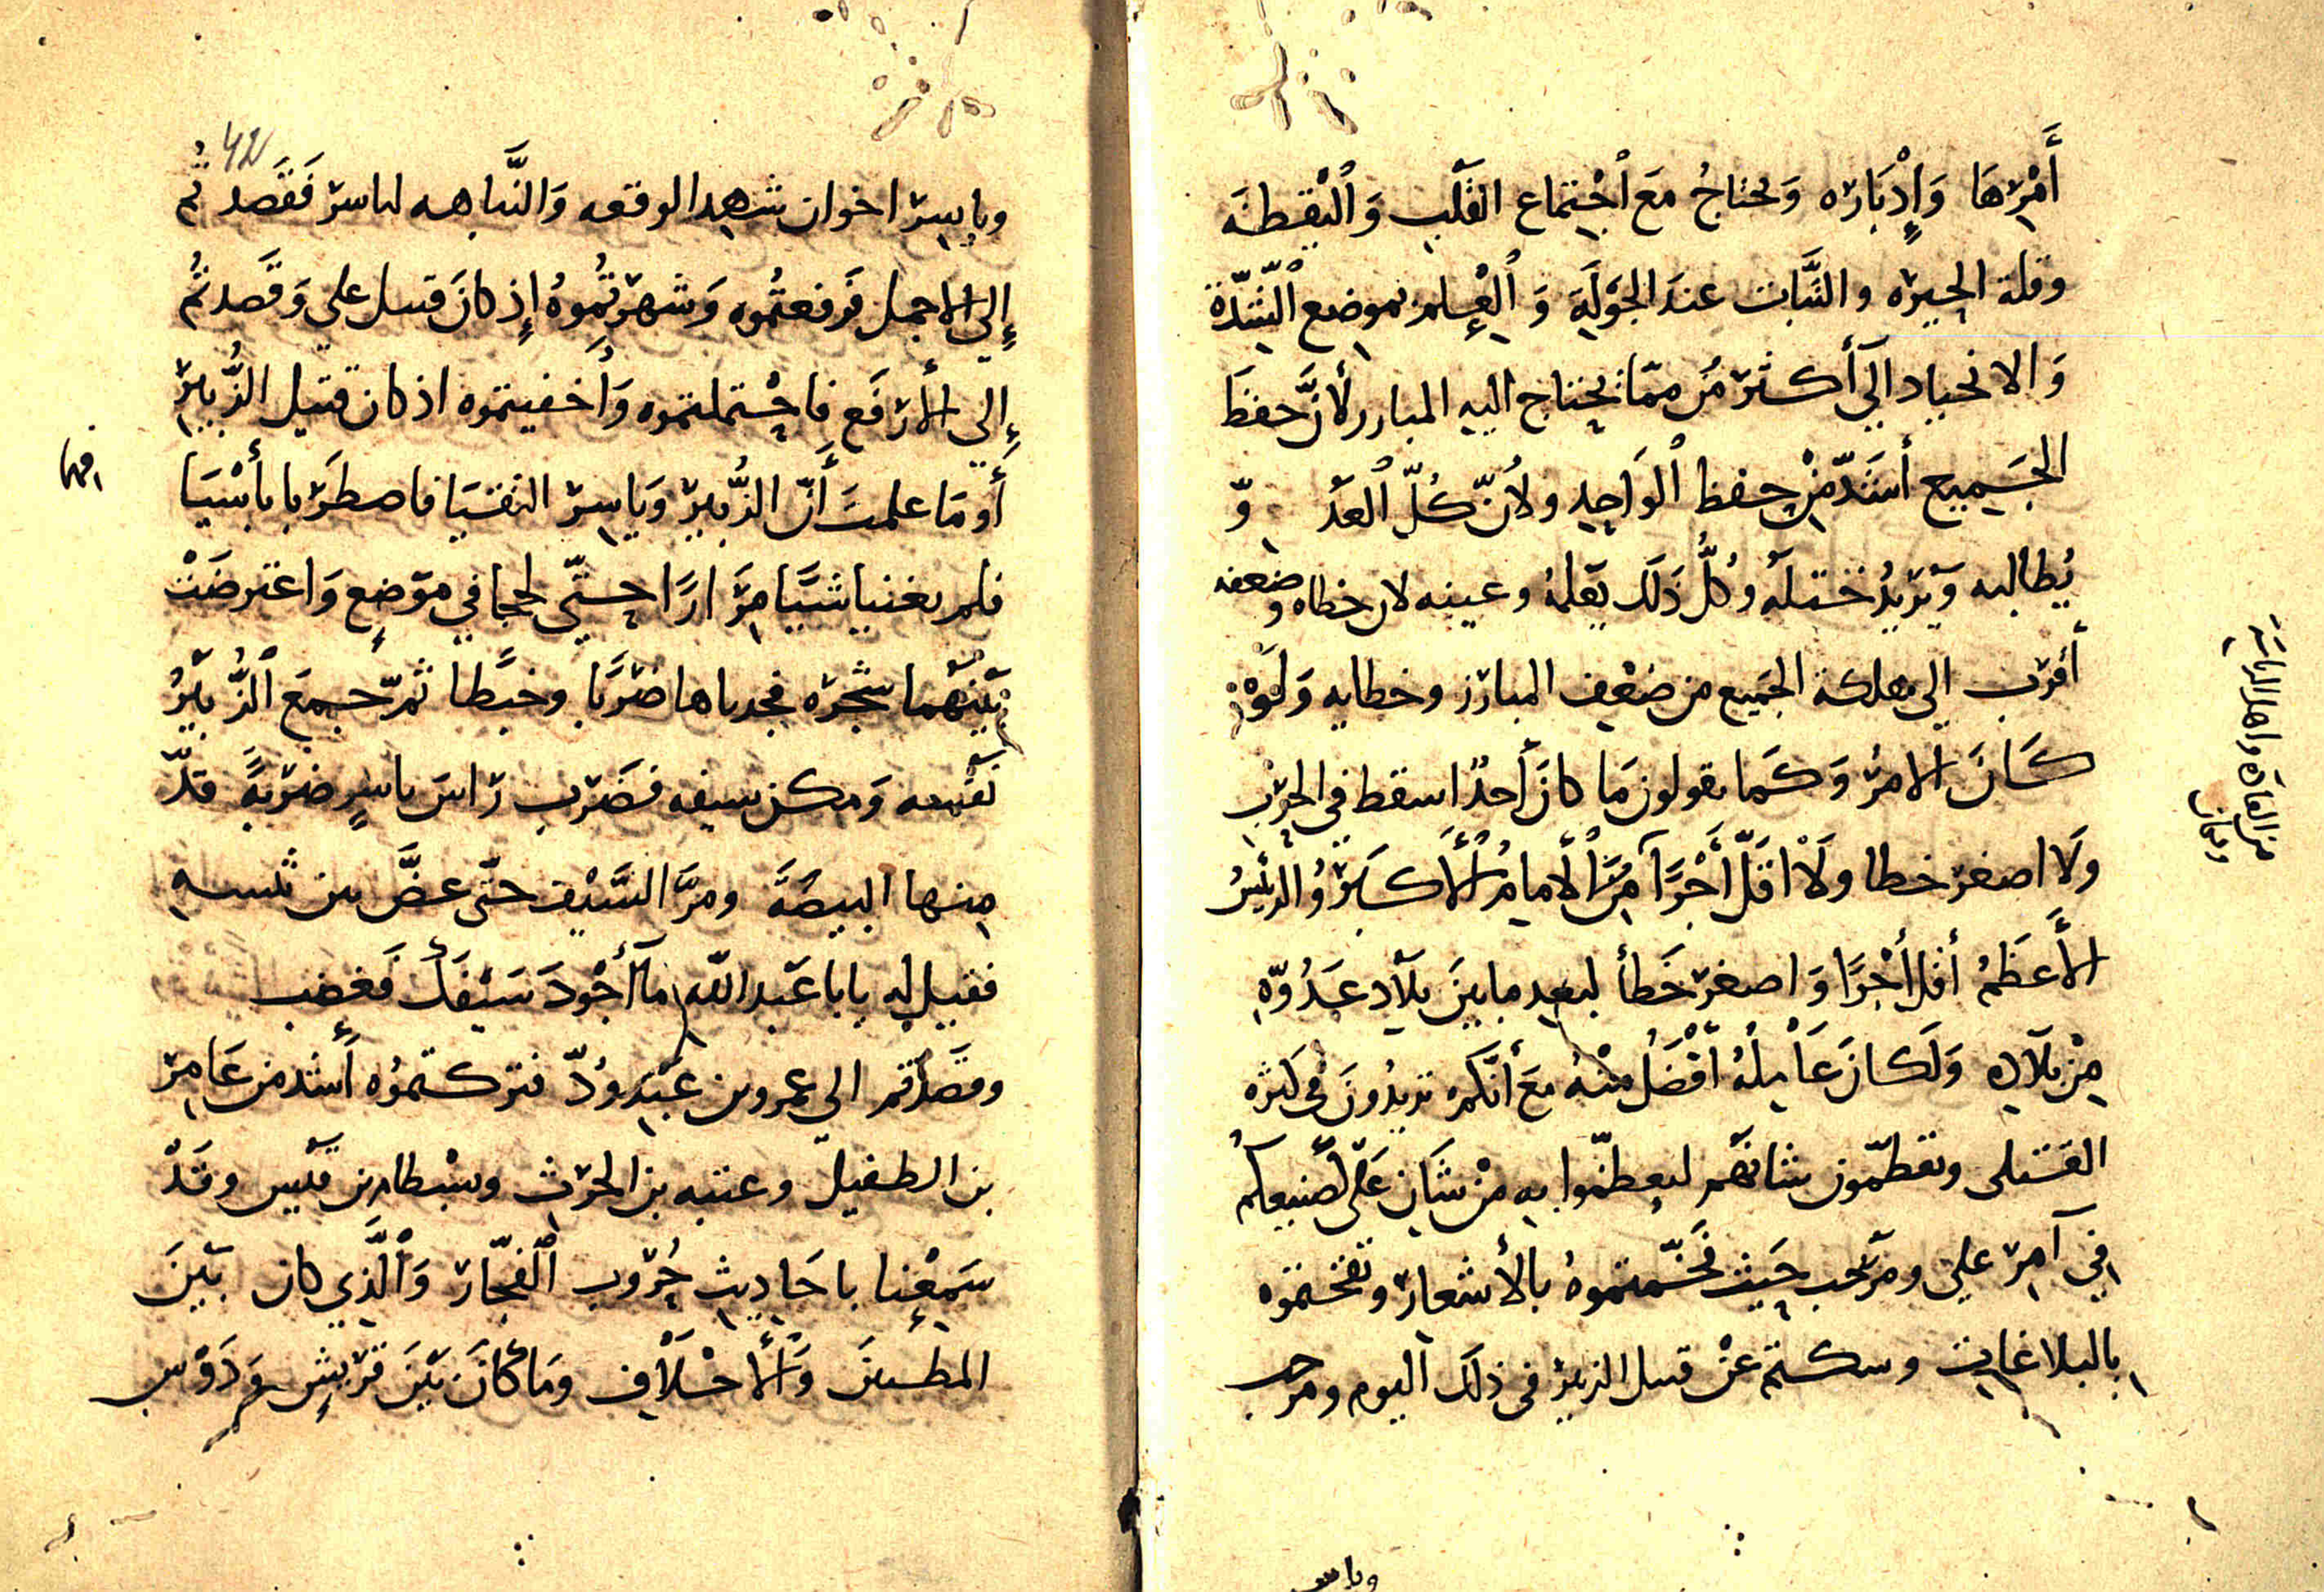 أَمْرِهَا وَإِدْبَارِه وَيحتاجُ مَعَ ٱجْتِماع القَلْبِ وَٱلْيَقِظَه
وقلة الحِيرَه والثَّبات عندَ الجَوْلَةِ وَ ٱلْعِلم بموضع ٱلشِّدّة
وَالانحياد الَى أكثرَ مِن ممّا يحتاج اليهِ المبارز لأنَّ حفظَ
الجَمِيع أشَدّ مِنْ حِفظ ٱلْوَاحِدِ ولأنّ كُلّ ٱلعَدُ وّ
يُطالبه وَيُرِيدُ ختله وكُلُّ ذَلكَ بقلبه وعينه لان خطاه وضعفه
أقرب الى هلكة الجَميع من ضعْف المبارَز وخطايه وَلَوْ
كَانَ الامرُ وَكَما يقولون مَا كانَ أحدٌ اسقط في الحَرْب
وَلَا اصغر خطا ولَا اقَلّ أَجْرًا مِنَ ٱلإمامِ الأَكبَرِ وُالرئيسُ
الأَعظَمُ أقل أَجْرًا وَاصغر خَطَأ لبعدِ مابينَ بِلَاد عَدُوِّهِ
مِنْ بلَادِه وَلَكانَ عَامِلُهُ أَفْضَلُ مِنْهُ مَعَ أَنَّكم تريدُونَ في كثرَه
القتلى وتعظّمون شانَهم لتعظّموا بهِ مِنْ شَانِ عَلَى لصَنيعكم
في آمر علي ومرحب حَيث فَخَّمتموهُ بالأشعار وتفخمتموه
بالبلاغات وسكتم عَنْ قتل الزبير في ذلك اليوم ومرحب
من القادَه واهل الرياسَه
وياسر
وياسِر اخوان شهدا لوقعه وَالنَّباهه لياسر فَقَصدتُم
إِلى الاجمل فرفعتُموه وَشهرتُموهُ إذ كانَ قتيل علي وَقَصدتُم
إِلى الأرفَع فاحْتملتموه وَأَخفيتموه اذ كان قتيل الزُّبير
أَو مَا علمتَ أَنّ الزُّبيرَ وَيَاسِرَ التقيَا فاصطربا بأسْيَا
فلم يغنيا شيًا مِرَارًا حتّى لحجا في موَضِع وَاعترضَتْ
بَيْنَهُما شجَرَه فجدباها ضَربًا وخبْطا ثمّ جمعَ ٱلزُّبَيْرُ
نَفْسه وَمكن سيفه فضَرب رَاسَ ياسِرٍ ضَربَةً قدّ
مِنها البيضَةَ ومرَّ السَّيْف حتّى عضَّ بين ثنيتيهِ
فقيل له يابا عَبد اللّه مَا أَجْودَ سَيْفَكَ فَغضِب
وقصَدْتم الى عمرو بن عَبْدِ وُدّ فتركتموُه أَشدّ من عَامِر
بن الطفيل وعتبه بن الحرث وبسْطام بن قَيْس وقَدْ
سَمِعْنا باحَادِيث حُرُوب ٱلْفِجَّار وَٱلَّذِي كان بَيْنَ
المطيبين وَٱلأَحْلَاف ومَا كَانَ بَيْنَ قُرَيْشٍ وَدَوْسٍ